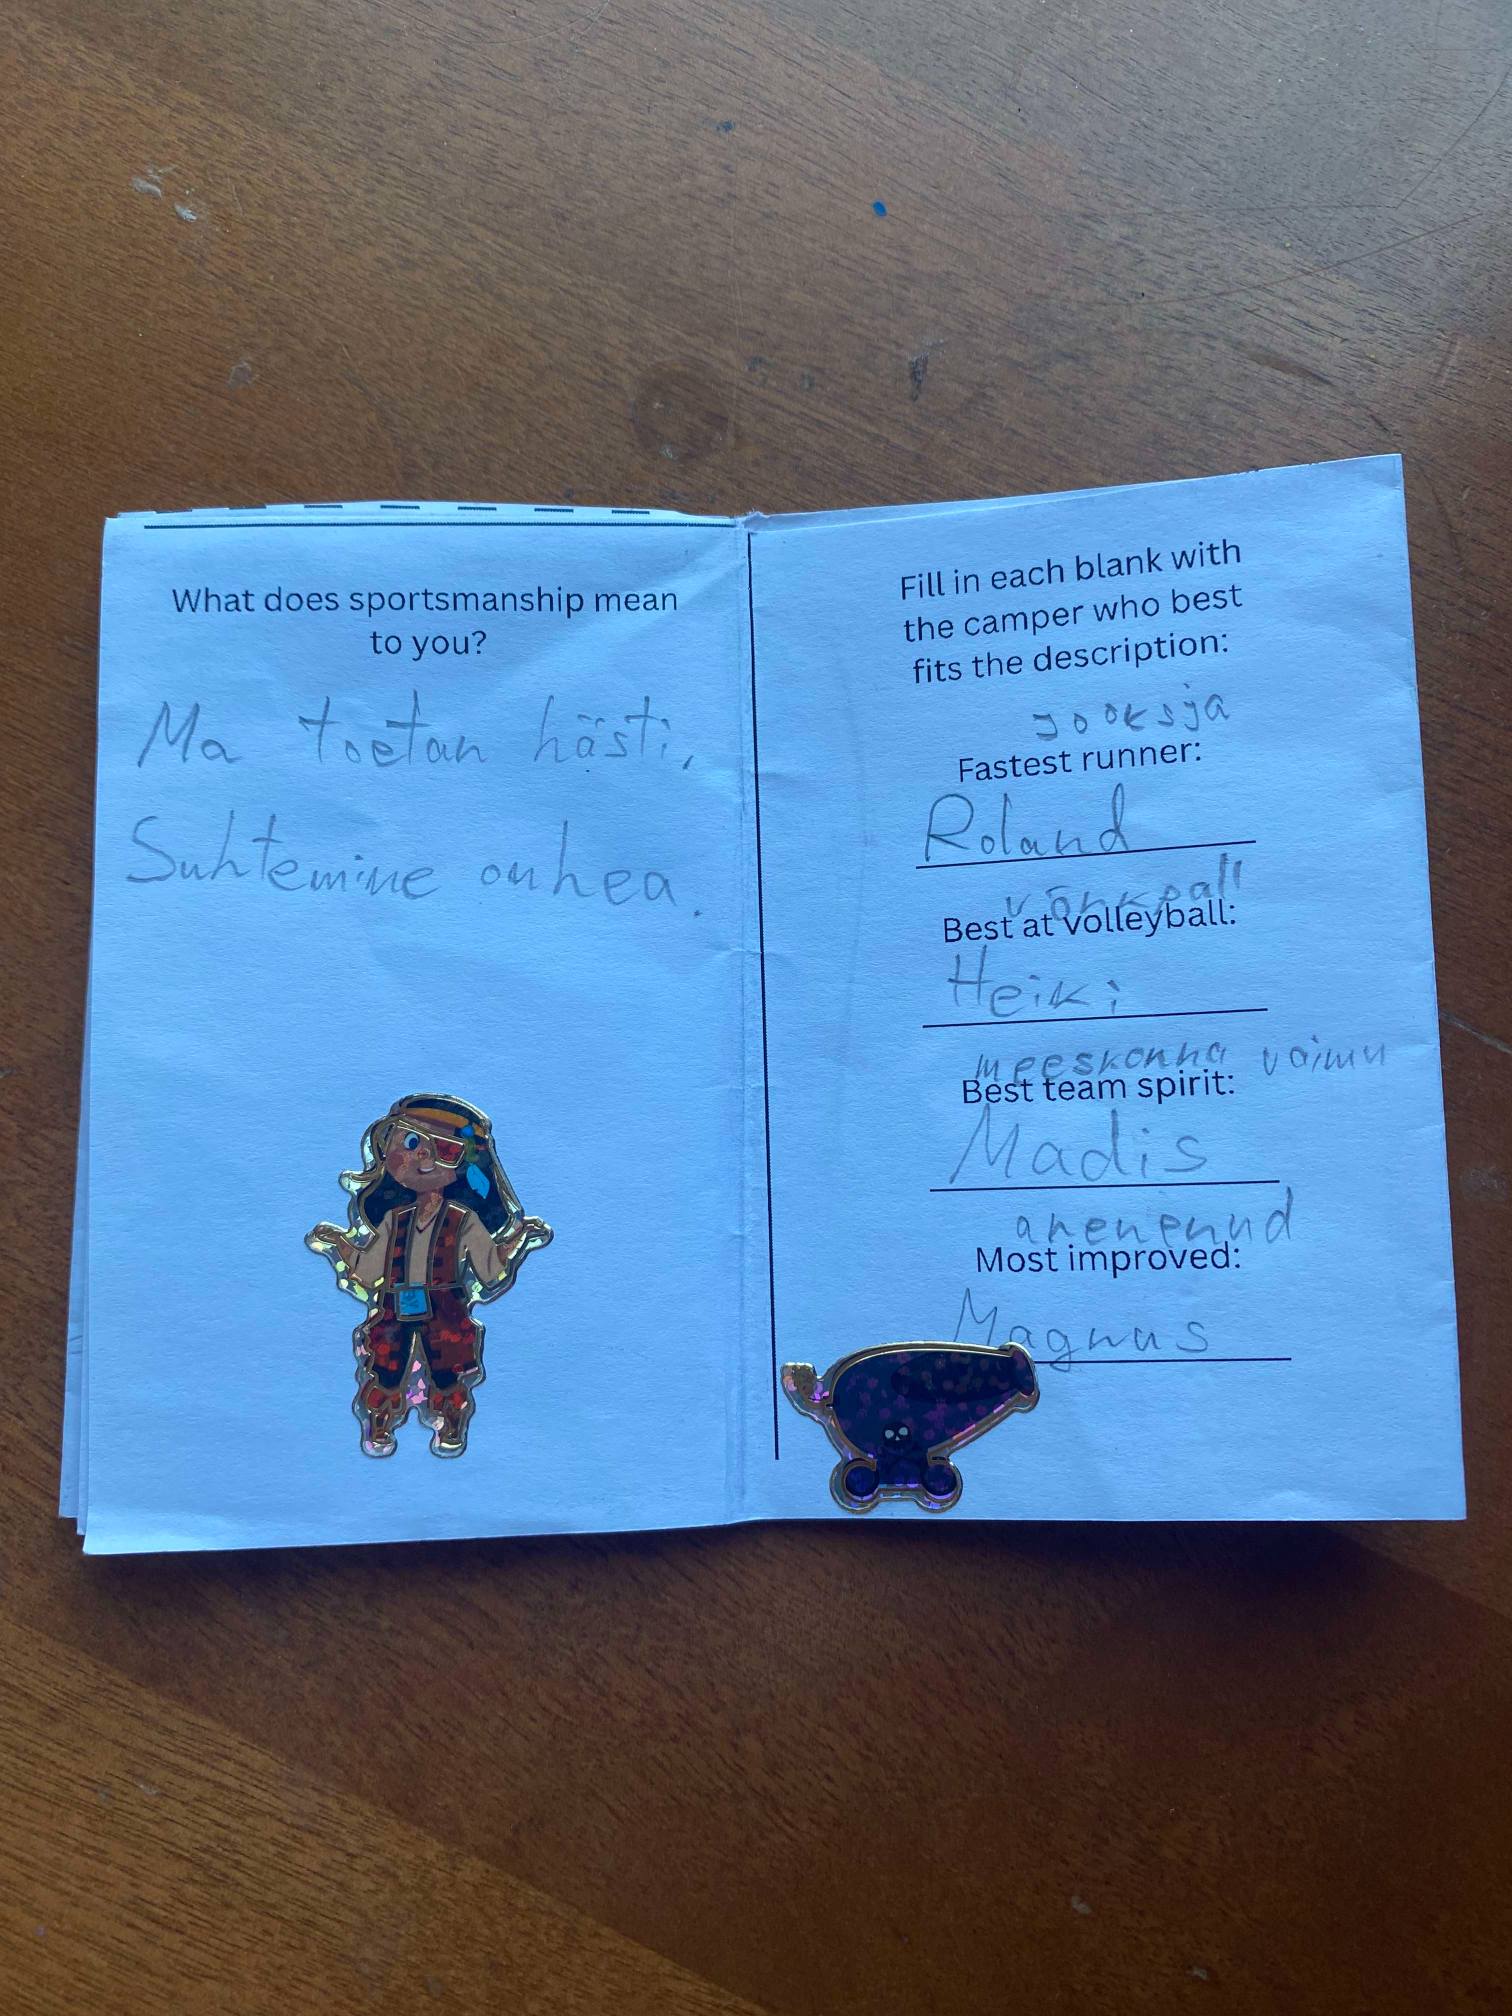 What does sportsmanship mean
to you?
Ma toetan hästi,
Suhtemine on hea.
Fill in each blank with
the camper who best
fits the description:
jooksja
Fastest runner:
Roland
võrkpall
Best at volleyball:
Heiki
meeskonna vaimu
Best team spirit:
Madis
arenenud
Most improved:
Magnus